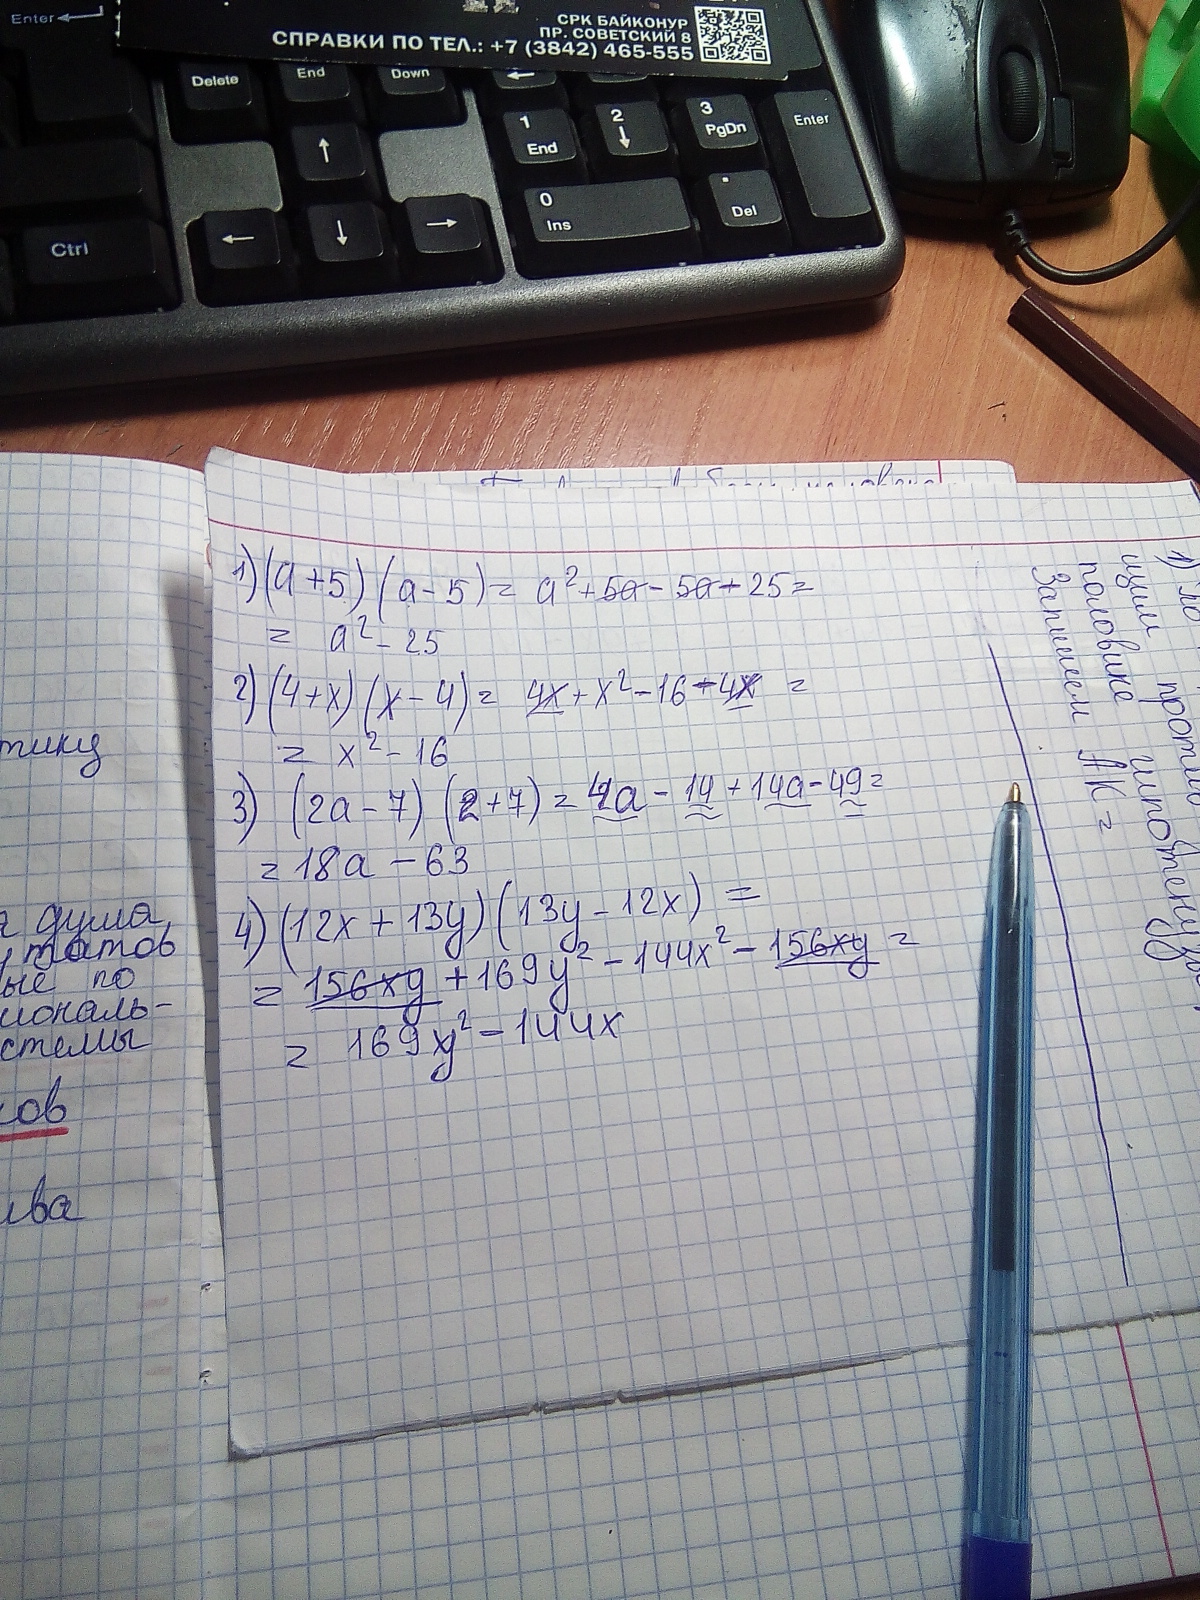 Enter
СРК БАЙКОНУР
ПР. СОВЕТСКИЙ 8
СПРАВКИ ПО ТЕЛ.: +7 (3842) 465-555
Delete
End
Down
1
End
2
3
PgDn
Enter
Ctrl
0
Ins
.
Del
1) (a + 5) (a - 5) = a² + 5a - 5a + 25 =
= a² - 25
2) (4 + x) (x - 4) = 4x + x² - 16 - 4x =
= x² - 16
3) (2a - 7) (2 + 7) = 4a - 14 + 14a - 49 =
= 18a - 63
4) (12x + 13y) (13y - 12x) =
= 156xy + 169y² - 144x² - 156xy =
= 169xy² - 144x
тику
душа
татов
ые по
иональ-
стемы
ков
ива
щим гипотенузы
половине
Запишем AK =